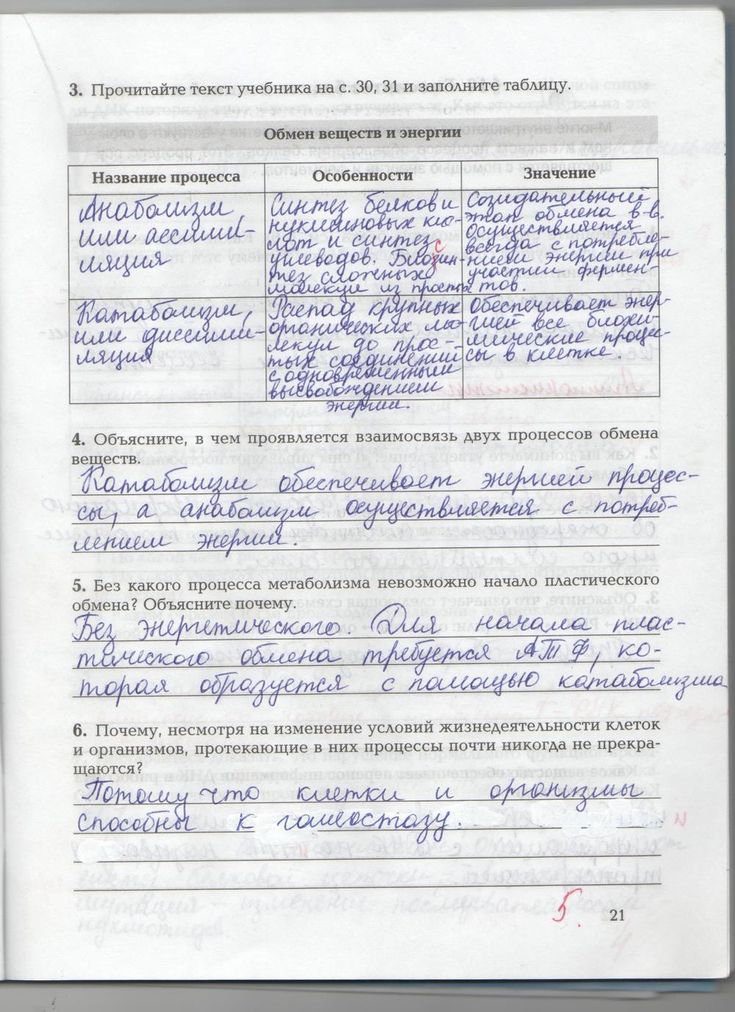 3. Прочитайте текст учебника на с. 30, 31 и заполните таблицу.
Обмен веществ и энергии
Название процесса
Особенности
Значение
Анаболизм
или ассими-
ляция
Синтез белков и
нуклеиновых кис-
лот и синтез
углеводов. Биосин-
тез сложных
молекул из простых
Созидательный
этап обмена в-в.
Осуществляется
всегда с потребле-
нием энергии при
участии фермен-
тов.
Катаболизм,
или диссими-
ляция
Распад крупных
органических мо-
лекул до прос-
тых соединений
с одновременным
высвобождением
энергии.
Обеспечивает энер-
гией все биохи-
мические процес-
сы в клетке.
4. Объясните, в чем проявляется взаимосвязь двух процессов обмена
веществ.
Катаболизм обеспечивает энергией процес-
сы, а анаболизм осуществляется с потреб-
лением энергии.
5. Без какого процесса метаболизма невозможно начало пластического
обмена? Объясните почему.
Без энергетического. Для начала плас-
тического обмена требуется АТФ, ко-
торая образуется с помощью катаболизма
6. Почему, несмотря на изменение условий жизнедеятельности клеток
и организмов, протекающие в них процессы почти никогда не прекра-
щаются?
Потому что клетки и организмы
способны к гомеостазу.
5.
21